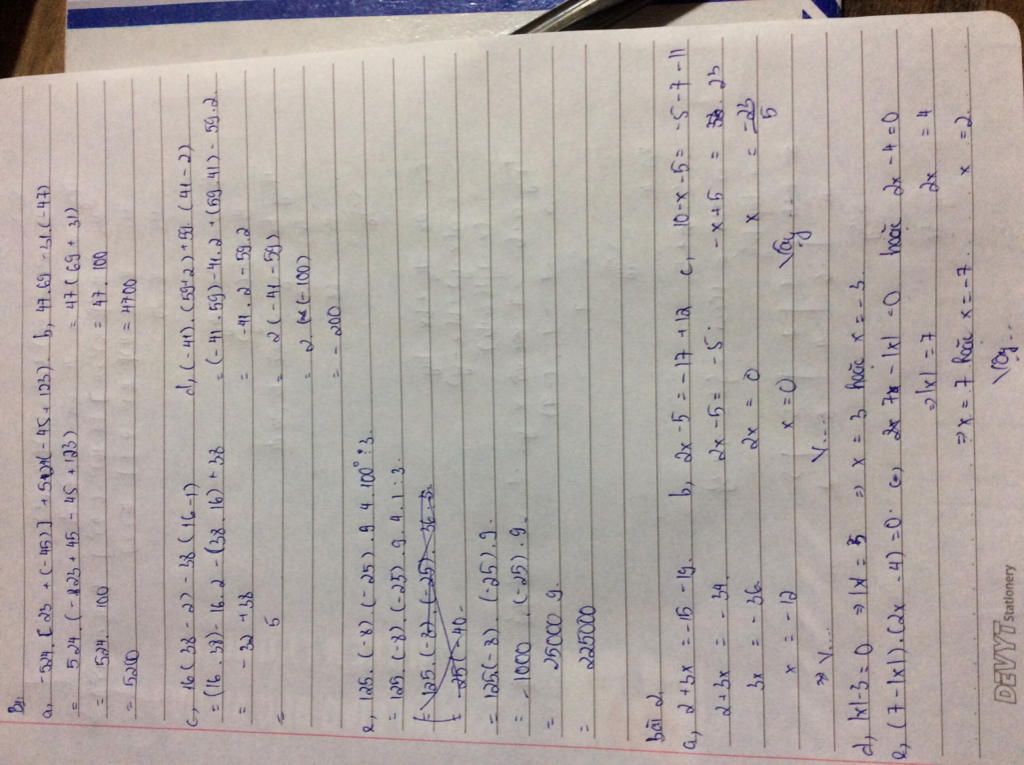 B1
a, -524.[23 + (-45)] + 524(-45 + 123).
= 524.(-823 + 45 - 45 + 123)
= 524. 100
= 5200
b, 47.69 - 31.(-47)
= 47(69 + 31)
= 47. 100
= 4700
c, 16(38 - 2) - 38(16 - 1)
= (16. 38) - 16.2 - (38. 16) + 38
= - 32 + 38
= 5
d, (-41).(59+2)+59.(41-2)
= (-41. 59) - 41.2 + (59.41) - 59.2.
= -41. 2 - 59.2
= 2(-41 - 59)
= 2. (-100)
= - 200
e, 125.(-8).(-25). 9. 4. 100⁰ : 3.
= 125.(-8).(-25). 9. 4. 1 : 3.
= 125.(-8).(-25). 36 : 3.
= 125(-8). (-25). 9.
= - 1000. (-25). 9.
= 25000. 9.
= 225000
bài 2
a, 2 + 3x = -15 - 19.
2 + 3x = - 34
3x = - 36
x = - 12
⇒ V....
b, 2x - 5 = -17 + 12
2x - 5 = - 5.
2x = 0
x = 0
V....
c, 10 - x - 5 = - 5 - 7 - 11
- x + 5 = 23
x = -23/5
Vậy...
d, |x| - 3 = 0 ⇒ |x| = 3 ⇒ x = 3 hoặc x = - 3.
e, (7 - |x|).(2x - 4) = 0. 7 - |x| = 0 hoặc 2x - 4 = 0
⇒ |x| = 7 2x = 4
⇒ x = 7 hoặc x = - 7. x = 2.
Vậy...
DEVYT Stationery